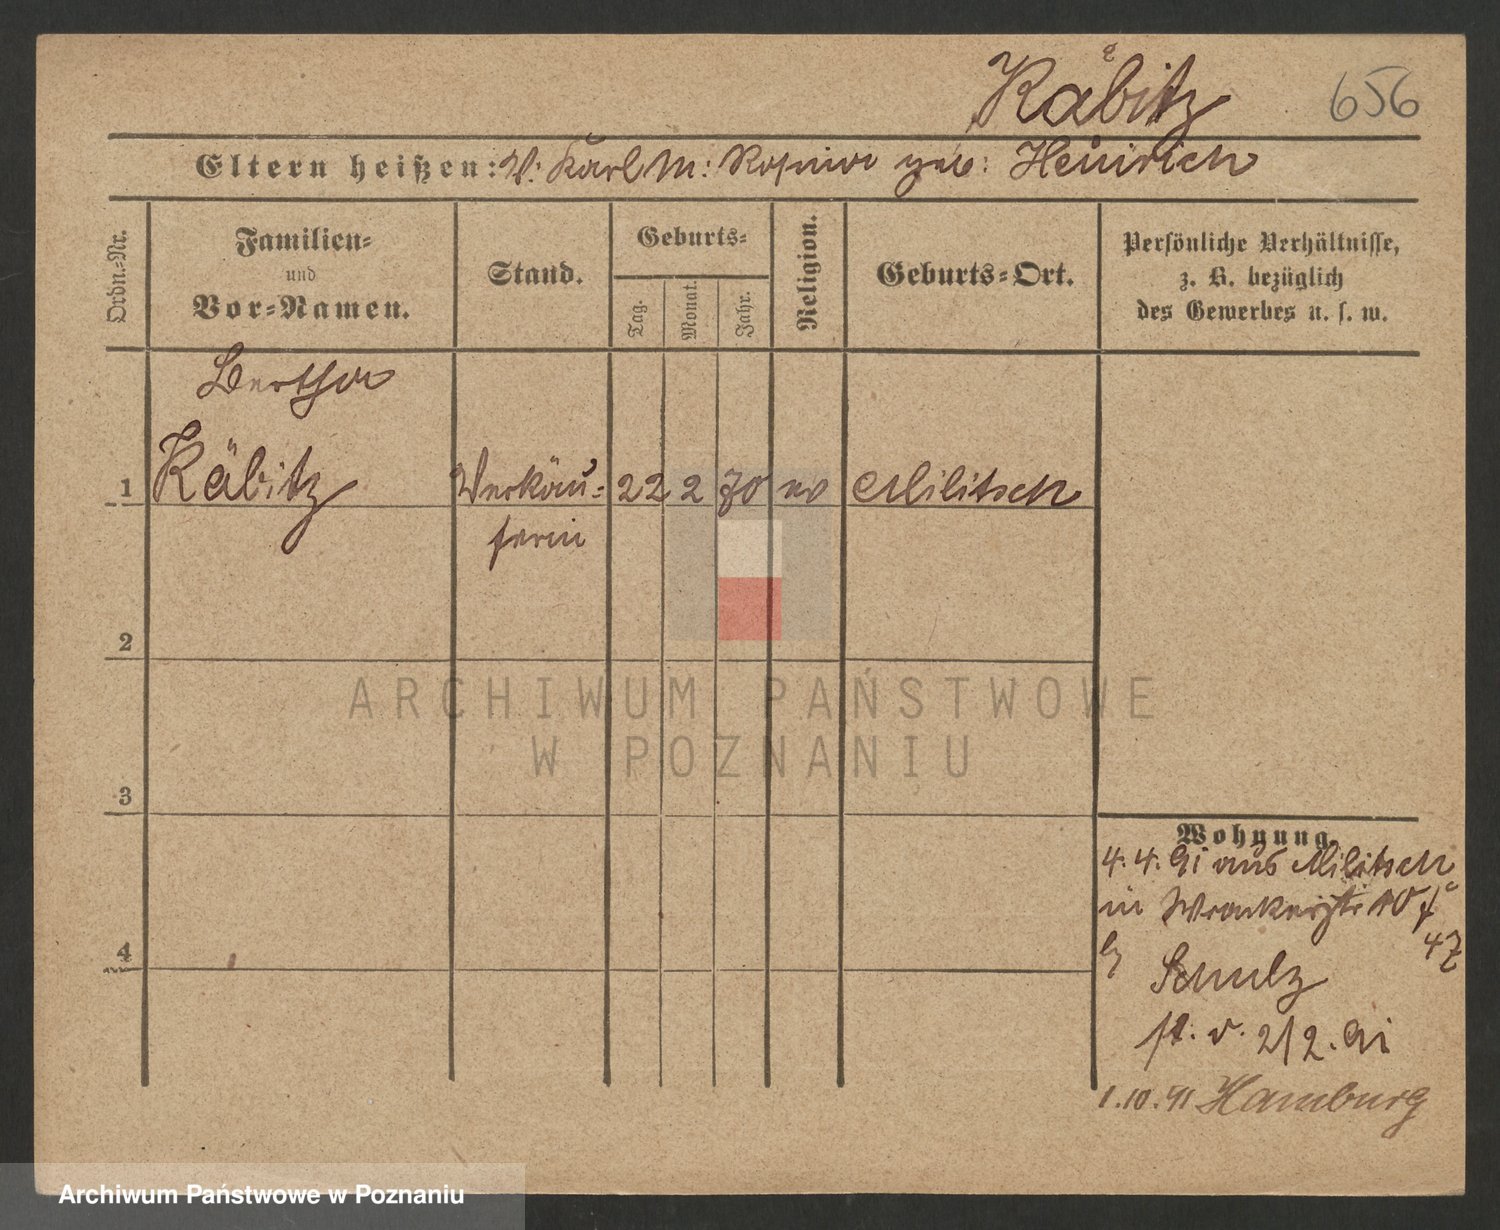 Käbitz 656
Eltern heißen: V: Karl M: Rosina geb: Heinrich
Ordn.-Nr.
Familien-
und
Vor-Namen.
Stand.
Geburts-
Tag.
Monat.
Jahr.
Religion.
Geburts-Ort.
Persönliche Verhältnisse,
z. B. bezüglich
des Gewerbes u. s. w.
Bertha
1 Käbitz Verkäu- 22 2 70 ev Militsch
ferin
2
3
4
ARCHIWUM PAŃSTWOWE
W POZNANIU
Wohnung.
4.4.91 aus Militsch
in 10
47
Schulz
v. 2/2.91
1.10.91 Hamburg
Archiwum Państwowe w Poznaniu